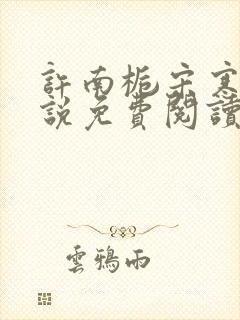 許南梔宋寒
說免費閱讀
雲鴉雨